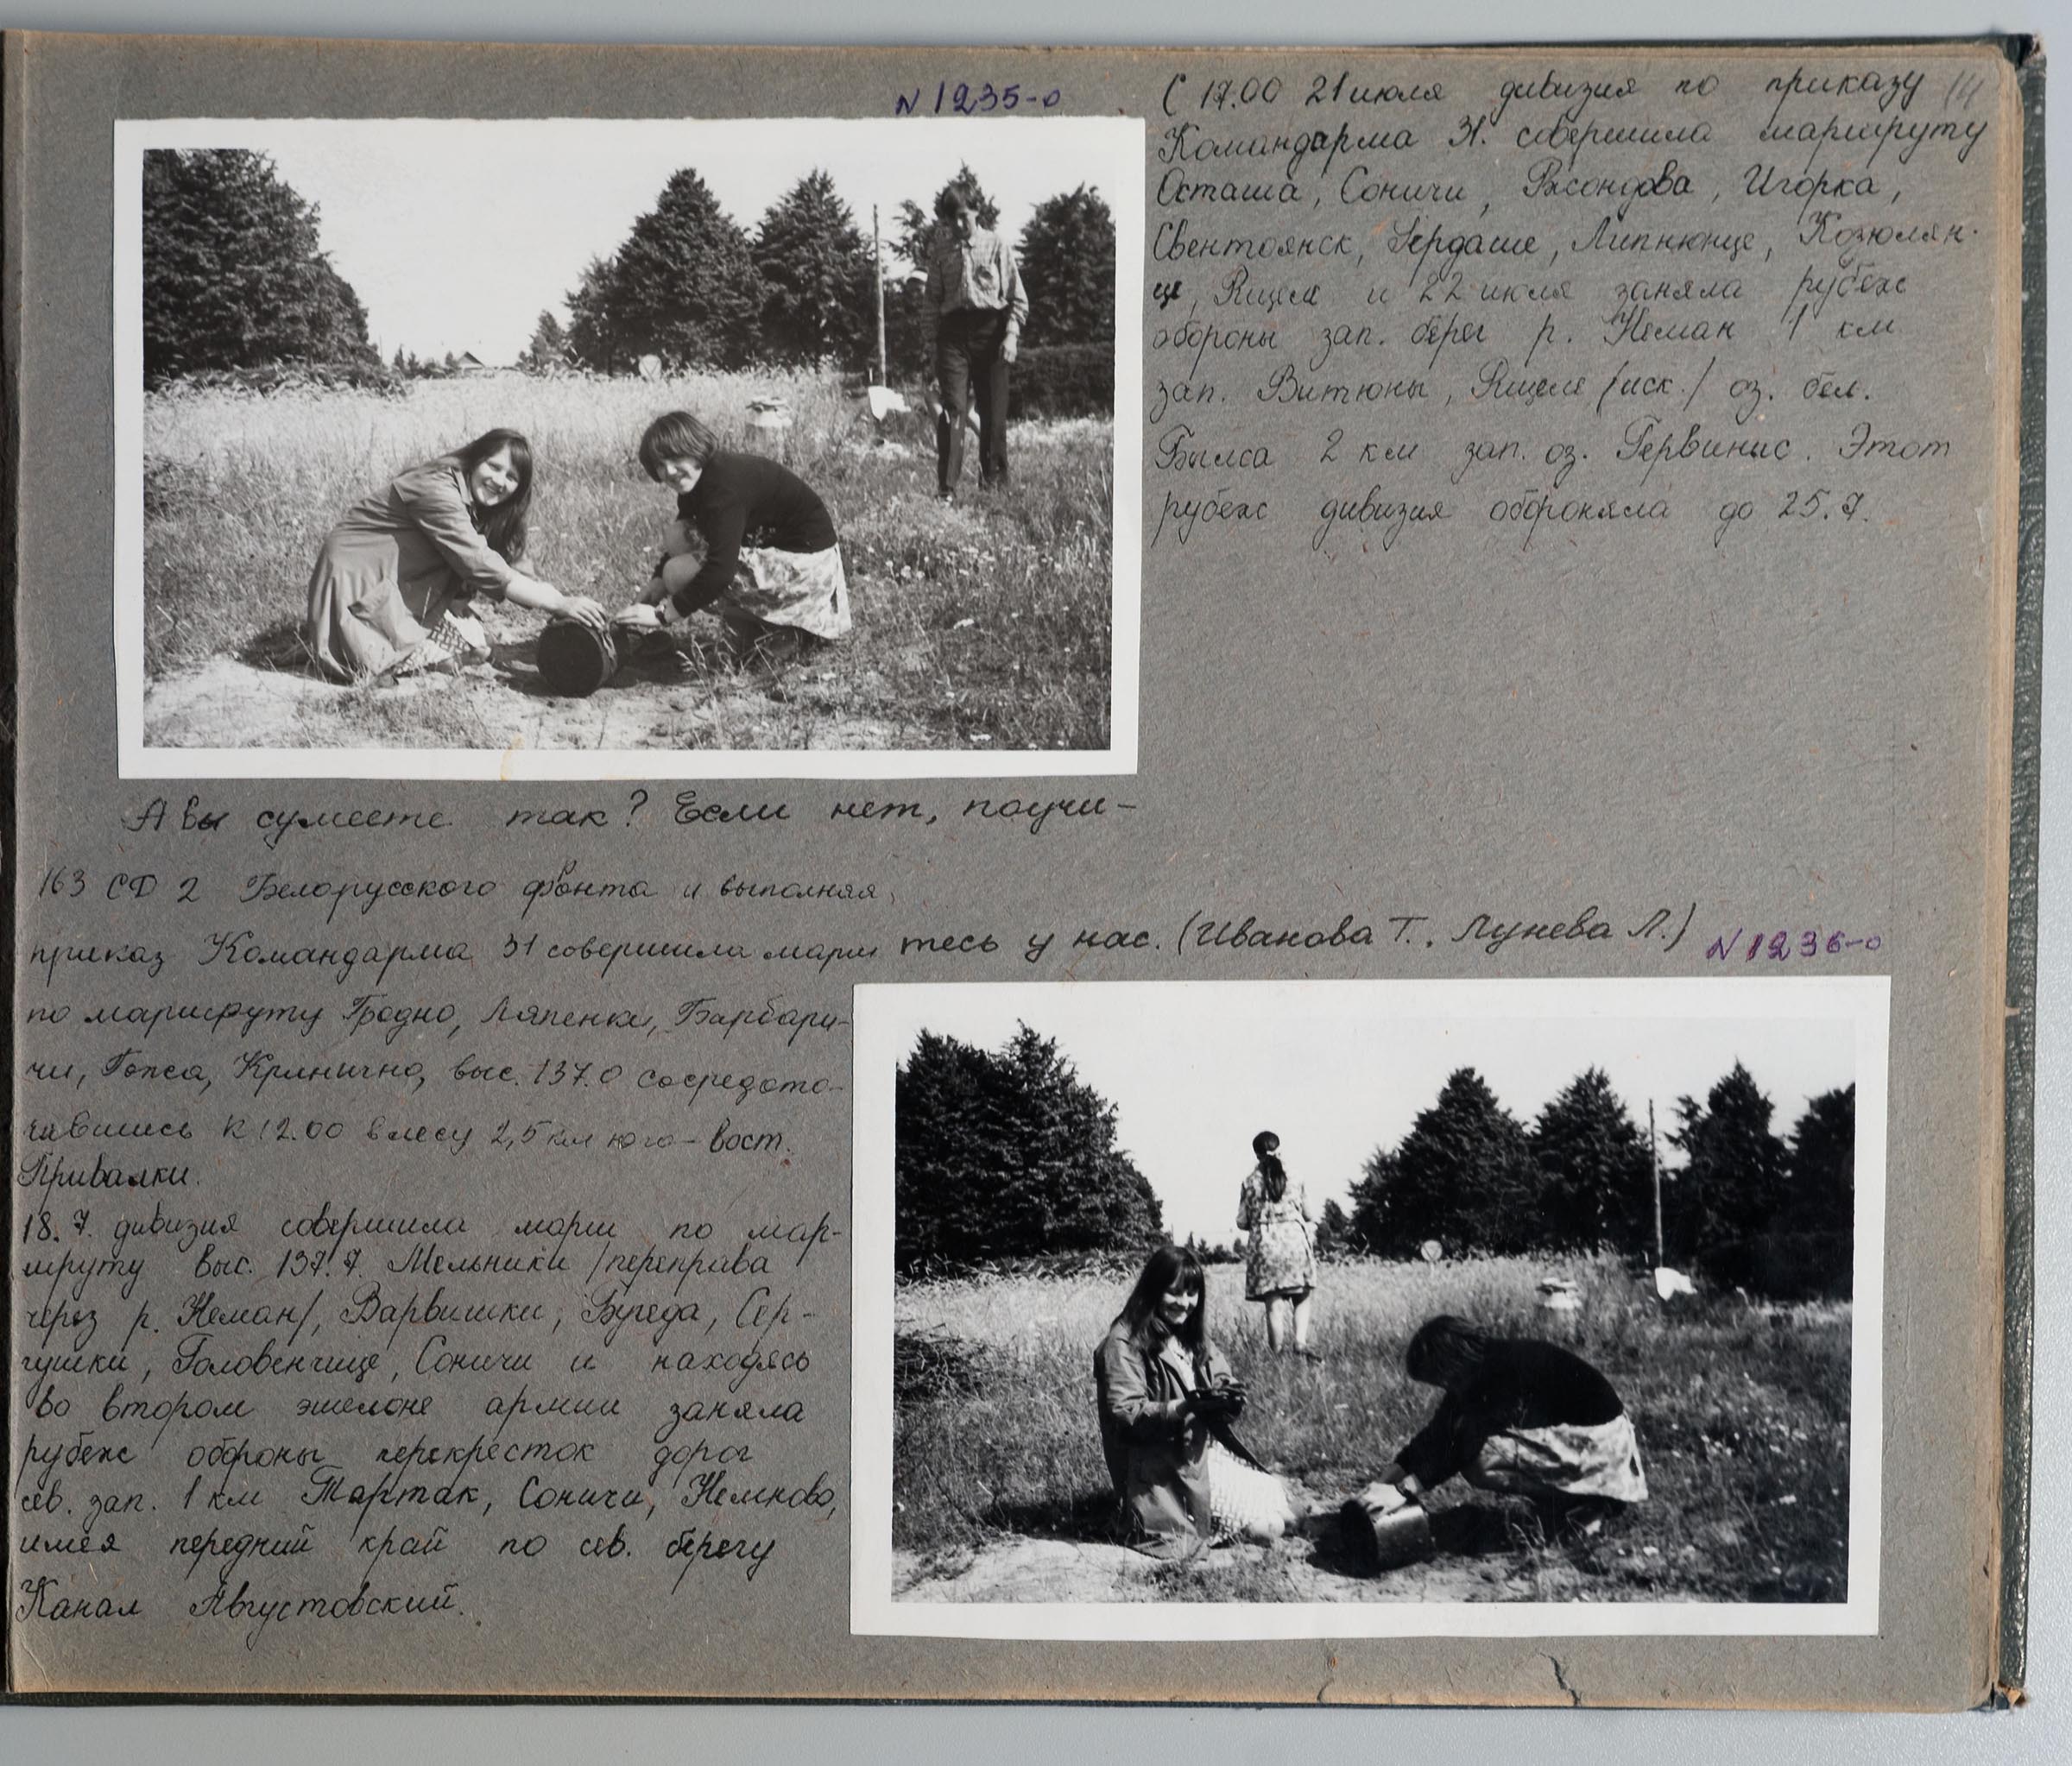 N 1235-о
С 17.00 21 июля дивизия по приказу 14
Командарма 31. совершила маршруту
Осташа, Соничи, Игорка,
Свентоянск, Гердаше, Липнюнце, Козюлян-
це, Яцеле и 22 июля заняла рубеж
обороны зап. берег р. Неман 1 км
зап. Витюны, Яцеле /иск./ оз. бел.
Былса 2 км зап. оз. Гервинис. Этот
рубеж дивизия обороняла до 25.7.
А вы сумеете так? Если нет, поучи-
тесь у нас. (Иванова Т., Лунева Л.)
N 1236-о
163 СД 2 Белорусского фронта и выполняя
приказ Командарма 31 совершила марш
по маршруту Гродно, Ляпенки, Барбари-
чи, Гожса, Кринично, выс. 137.0 сосредото-
чившись к 12.00 в лесу 2,5 км юго-вост.
Привалки.
18.7. дивизия совершила марш по мар-
шруту выс. 137.7. Мельники /переправа
через р. Неман/, Варвишки, Буреда, Сер-
гушки, Головенчице, Соничи и находясь
во втором эшелоне армии заняла
рубеж обороны перекресток дорог
сев. зап. 1 км Тартак, Соничи, Немново,
имея передний край по сев. берегу
Канал Августовский.